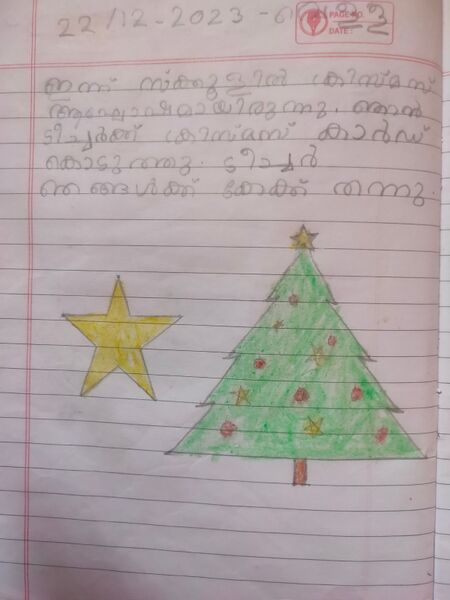 22/12-2023 - വെള്ളി
PAGE NO.
DATE:
ഇന്ന് സ്ക്കൂളിൽ ക്രിസ്മസ്
ആഘോഷമായിരുന്നു. ഞാൻ
ടീച്ചർക്ക് ക്രിസ്മസ് കാർഡ്
കൊടുത്തു. ടീച്ചർ
ഞങ്ങൾക്ക് കേക്ക് തന്നു.